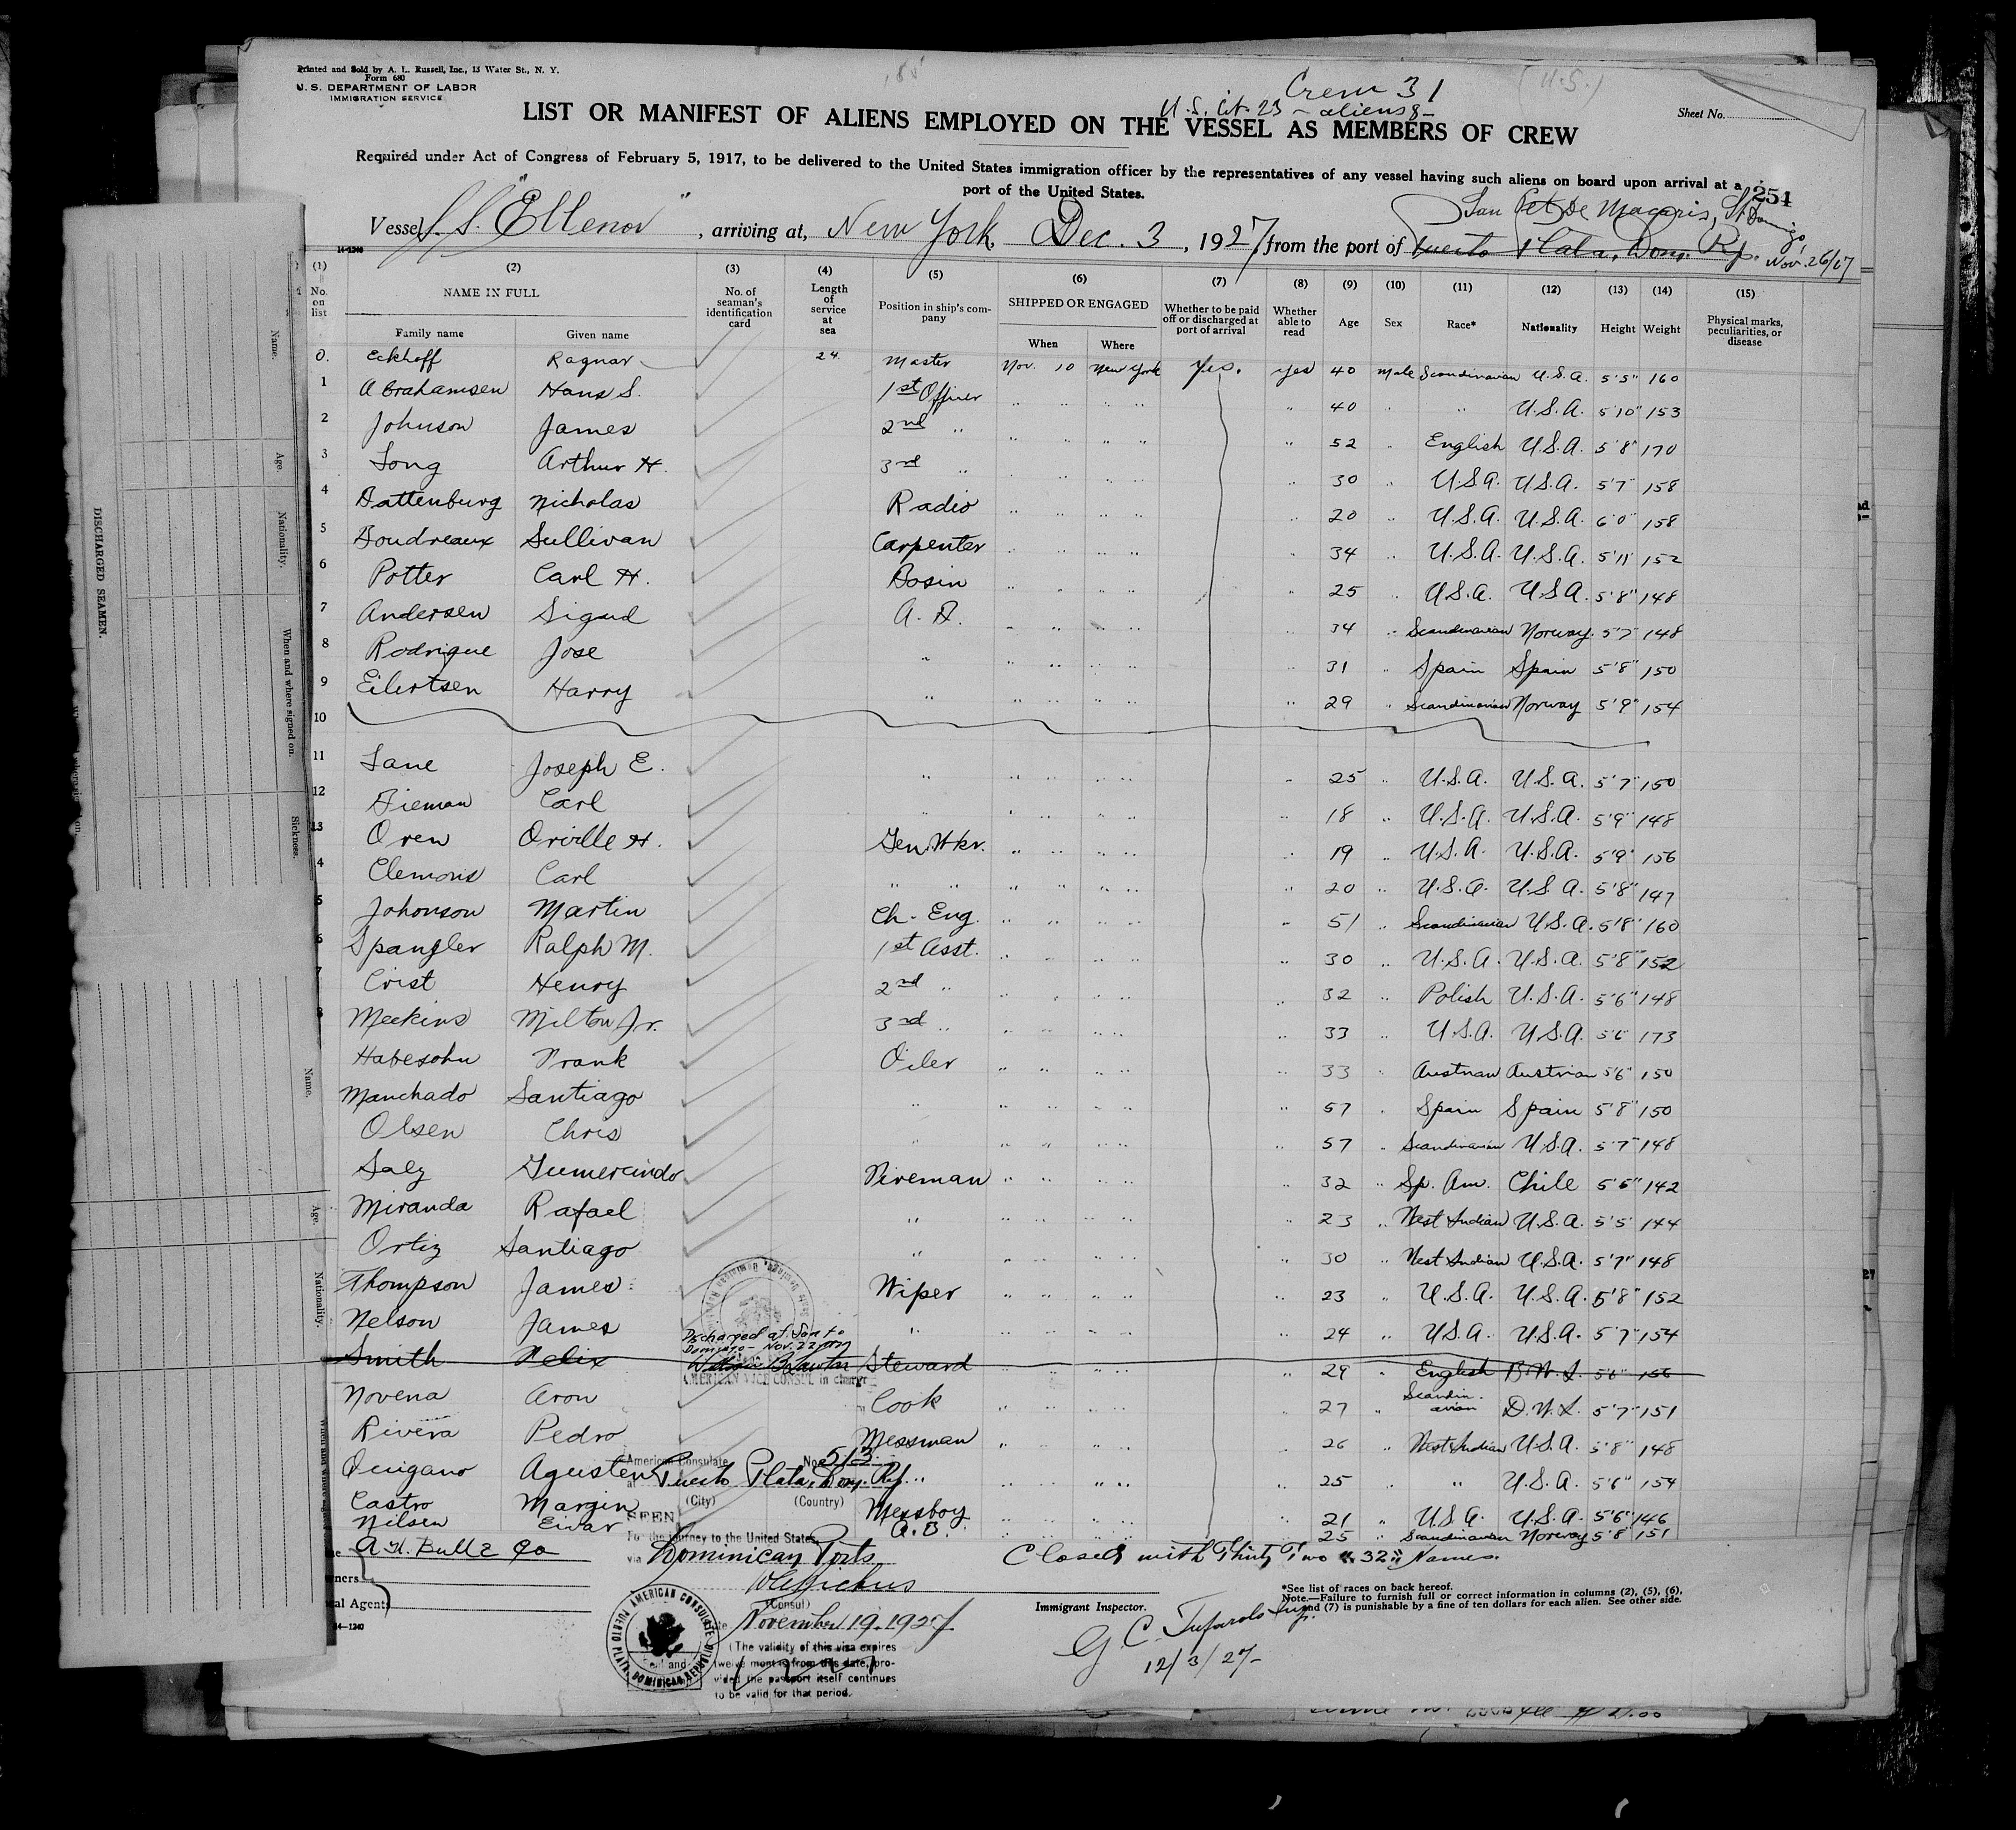 Printed and Sold by A. L. Russell, Inc., 13 Water St., N. Y.
Form 680
U. S. DEPARTMENT OF LABOR
IMMIGRATION SERVICE
Crew 31
(U.S.)
U.S. Cit. 23 - aliens 8 -
Sheet No.
LIST OR MANIFEST OF ALIENS EMPLOYED ON THE VESSEL AS MEMBERS OF CREW
Required under Act of Congress of February 5, 1917, to be delivered to the United States immigration officer by the representatives of any vessel having such aliens on board upon arrival at a
port of the United States.
254
Vessel S.S. "Ellenor", arriving at, New York, Dec. 3, 1927, from the port of Puerto Plata, Dom. Rp.
San Pet de Macoris, St Domingo, Nov. 26/27
14-1240
(1) (2) (3) (4) (5) (6) (7) (8) (9) (10) (11) (12) (13) (14) (15)
No. on list NAME IN FULL No. of seaman's identification card Length of service at sea Position in ship's company SHIPPED OR ENGAGED Whether to be paid off or discharged at port of arrival Whether able to read Age Sex Race* Nationality Height Weight Physical marks, peculiarities, or disease
Family name Given name When Where
0. Eckhoff Ragnar 24 Master Nov. 10 New York Yes. yes 40 Male Scandinavian U.S.A. 5'5" 160
1 Abrahamsen Hans S. 1st Officer " " " " " 40 " " U.S.A. 5'10" 153
2 Johnson James 2nd " " " " " " 52 " English U.S.A. 5'8" 170
3 Long Arthur H. 3rd " " " " " 30 " U.S.A. U.S.A. 5'7" 158
4 Battenburg Nicholas Radio " " " " " 20 " U.S.A. U.S.A. 6'0" 158
5 Boudreaux Sullivan Carpenter " " " " " 34 " U.S.A. U.S.A. 5'11" 152
6 Potter Carl H. Bosin " " " " " 25 " U.S.A. U.S.A. 5'8" 148
7 Andersen Sigurd A. B. " " " " " 34 " Scandinavian Norway 5'7" 148
8 Rodrigue Jose " " " " " " 31 " Spain Spain 5'8" 150
9 Eilertsen Harry " " " " " " 29 " Scandinavian Norway 5'9" 154
10
11 Lane Joseph E. " " " " " " 25 " U.S.A. U.S.A. 5'7" 150
12 Dieman Carl " " " " " " 18 " U.S.A. U.S.A. 5'9" 148
13 Oren Orville H. Gen. Hkr. " " " " " 19 " U.S.A. U.S.A. 5'9" 156
4 Clemons Carl " " " " " " " 20 " U.S.A. U.S.A. 5'8" 147
5 Johonson Martin Ch. Eng. " " " " " 51 " Scandinavian U.S.A. 5'8" 160
6 Spangler Ralph M. 1st Asst. " " " " " 30 " U.S.A. U.S.A. 5'8" 152
7 Crist Henry 2nd " " " " " " 32 " Polish U.S.A. 5'6" 148
8 Meekins Milton Jr. 3rd " " " " " " 33 " U.S.A. U.S.A. 5'6 173
Habesohn Frank Oiler " " " " " 33 " Austrian Austrian 5'6" 150
Manchado Santiago " " " " " " 57 " Spain Spain 5'8" 150
Olsen Chris " " " " " " 57 " Scandinavian U.S.A. 5'7" 148
Saez Gumercindo Fireman " " " " " 32 " Sp. Am. Chile 5'5" 142
Miranda Rafael " " " " " " 23 " West Indian U.S.A. 5'5 144
Ortiz Santiago " " " " " " 30 " West Indian U.S.A. 5'7" 148
Thompson James Wiper " " " " " 23 " U.S.A. U.S.A. 5'8" 152
Nelson James " " " " " " 24 " U.S.A. U.S.A. 5'7" 154
Discharged at Santo
Domingo - Nov. 22
Smith Felix Steward " " " " 29 " English B.W.I. 5'6"
AMERICAN VICE CONSUL in charge
Novena Aron Cook " " " " " 27 " Scandinavian D.W.I. 5'7" 151
Rivera Pedro Messman " " " " " 26 " West Indian U.S.A. 5'8" 148
Quigano Agusten " " " " " 25 " " U.S.A. 5'6" 154
Castro Margin Messboy " " " " 21 " U.S.A. U.S.A. 5'6" 146
Nilsen Eivar A.B. " " " " 25 " Scandinavian Norway 5'8 151
American Consulate No. 513
at Puerto Plata, Dom. Rep.
(City) (Country)
SEEN
For the journey to the United States
via Dominican Ports
(Consul)
Date November 19. 1927
(The validity of this visa expires
twelve months from this date, provided
the passport itself continues
to be valid for that period.
AMERICAN CONSULATE
PUERTO PLATA, DOMINICAN REPUBLIC
A. H. Bull & Co
Closes with Thirty Two "32" Names.
Immigrant Inspector.
12/3/27-
*See list of races on back hereof.
Note.—Failure to furnish full or correct information in columns (2), (5), (6),
and (7) is punishable by a fine of ten dollars for each alien. See other side.
14-1240
DISCHARGED SEAMEN.
Name.
Age.
Nationality.
When and where signed on.
Sickness.
Name.
Age.
Nationality.